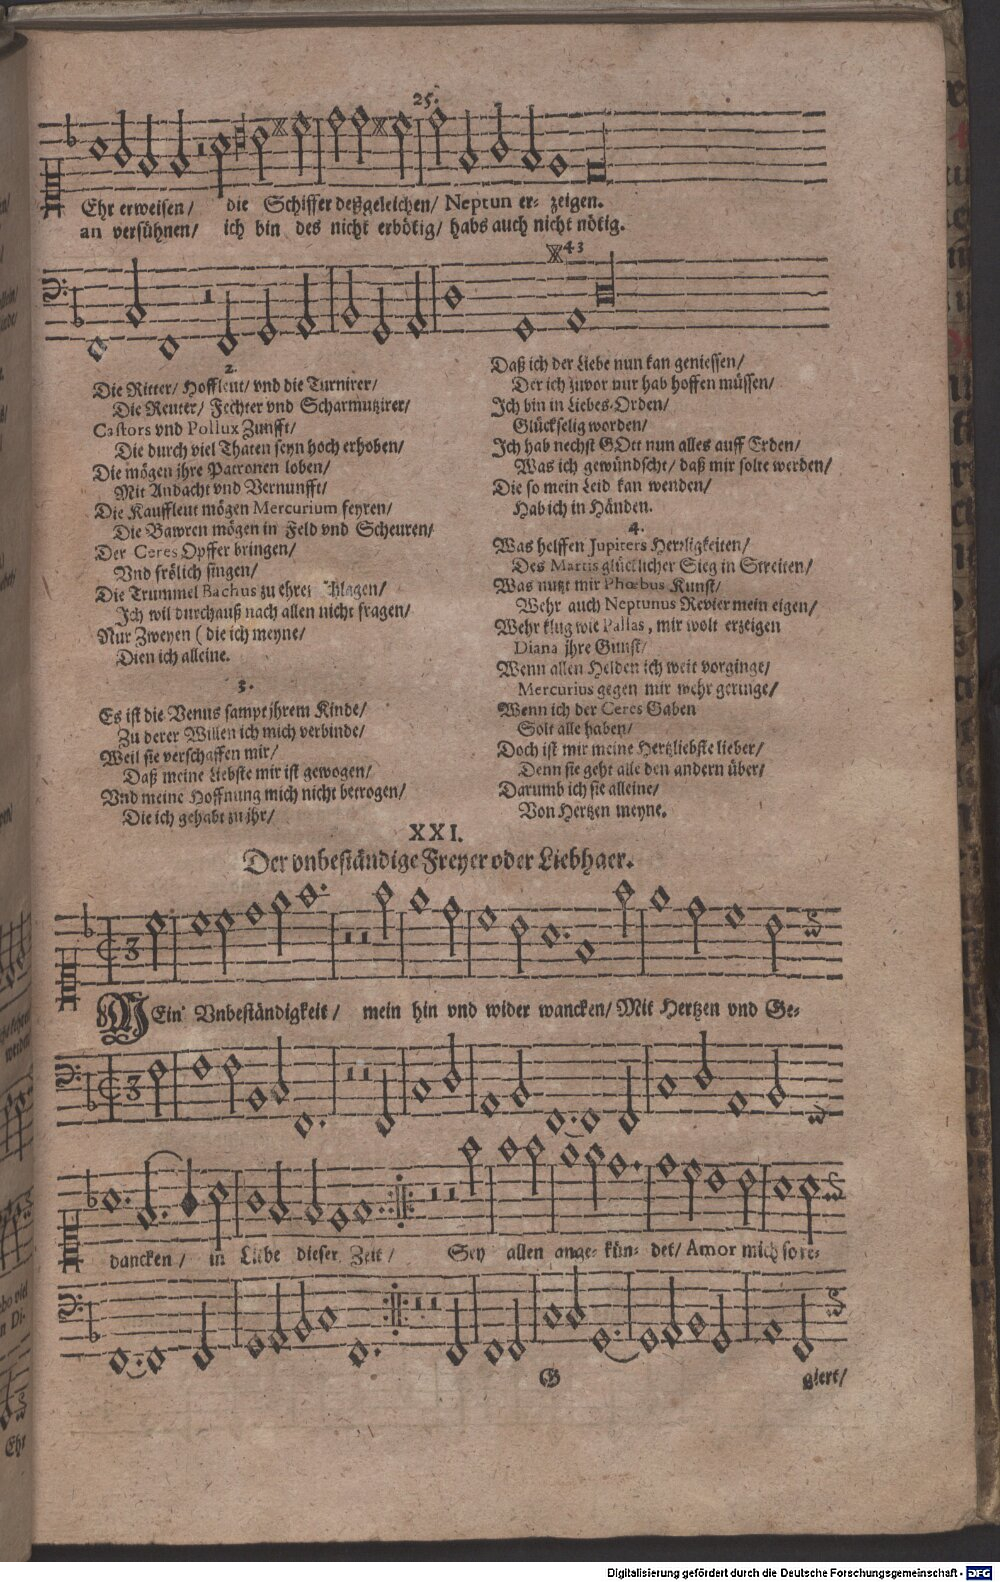 25.
Ehr erweisen/ die Schiffer deßgeleichen/ Neptun er- zeigen.
an versühnen/ ich bin des nicht erbötig/ habs auch nicht nötig.
43
2.
Die Ritter/ Hoffleut/ vnd die Turnirer/
Die Reuter/ Fechter vnd Scharmutzirer/
Castors vnd Pollux Zunfft/
Die durch viel Thaten seyn hoch erhoben/
Die mögen jhre Patronen loben/
Mit Andacht vnd Vernunfft/
Die Kauffleut mögen Mercurium feyren/
Die Bawren mögen in Feld vnd Scheuren/
Der Ceres Opffer bringen/
Vnd frölich singen/
Die Trummel Bachus zu ehren schlagen/
Ich wil durchauß nach allen nicht fragen/
Nur Zweyen (die ich meyne/
Dien ich alleine.
3.
Es ist die Venus sampt jhrem Kinde/
Zu derer Willen ich mich verbinde/
Weil sie verschaffen mir/
Daß meine Liebste mir ist gewogen/
Vnd meine Hoffnung mich nicht betrogen/
Die ich gehabt zu jhr/
Daß ich der Liebe nun kan geniessen/
Der ich zuvor nur hab hoffen müssen/
Ich bin in Liebes-Orden/
Glückselig worden/
Ich hab nechst GOtt nun alles auff Erden/
Was ich gewündscht/ daß mir solte werden/
Die so mein Leid kan wenden/
Hab ich in Händen.
4.
Was helffen Jupiters Herrligkeiten/
Des Martis glücklicher Sieg in Streiten/
Was nutzt mir Phœbus Kunst/
Wehr auch Neptunus Revier mein eigen/
Wehr klug wie Pallas, mir wolt erzeigen
Diana jhre Gunst/
Wenn allen Helden ich weit vorginge/
Mercurius gegen mir wehr geringe/
Wenn ich der Ceres Gaben
Solt alle haben/
Doch ist mir meine Hertzliebste lieber/
Denn sie geht alle den andern über/
Darumb ich sie alleine/
Von Hertzen meyne.
XXI.
Der vnbeständige Freyer oder Liebhaer.
3
MEin Vnbeständigkeit/ mein hin vnd wider wancken/ Mit Hertzen vnd Ge-
3
dancken/ in Liebe dieser Zeit/ Sey allen ange- kün- det/ Amor mich so re-
G giert/
Digitalisierung gefördert durch die Deutsche Forschungsgemeinschaft - DFG